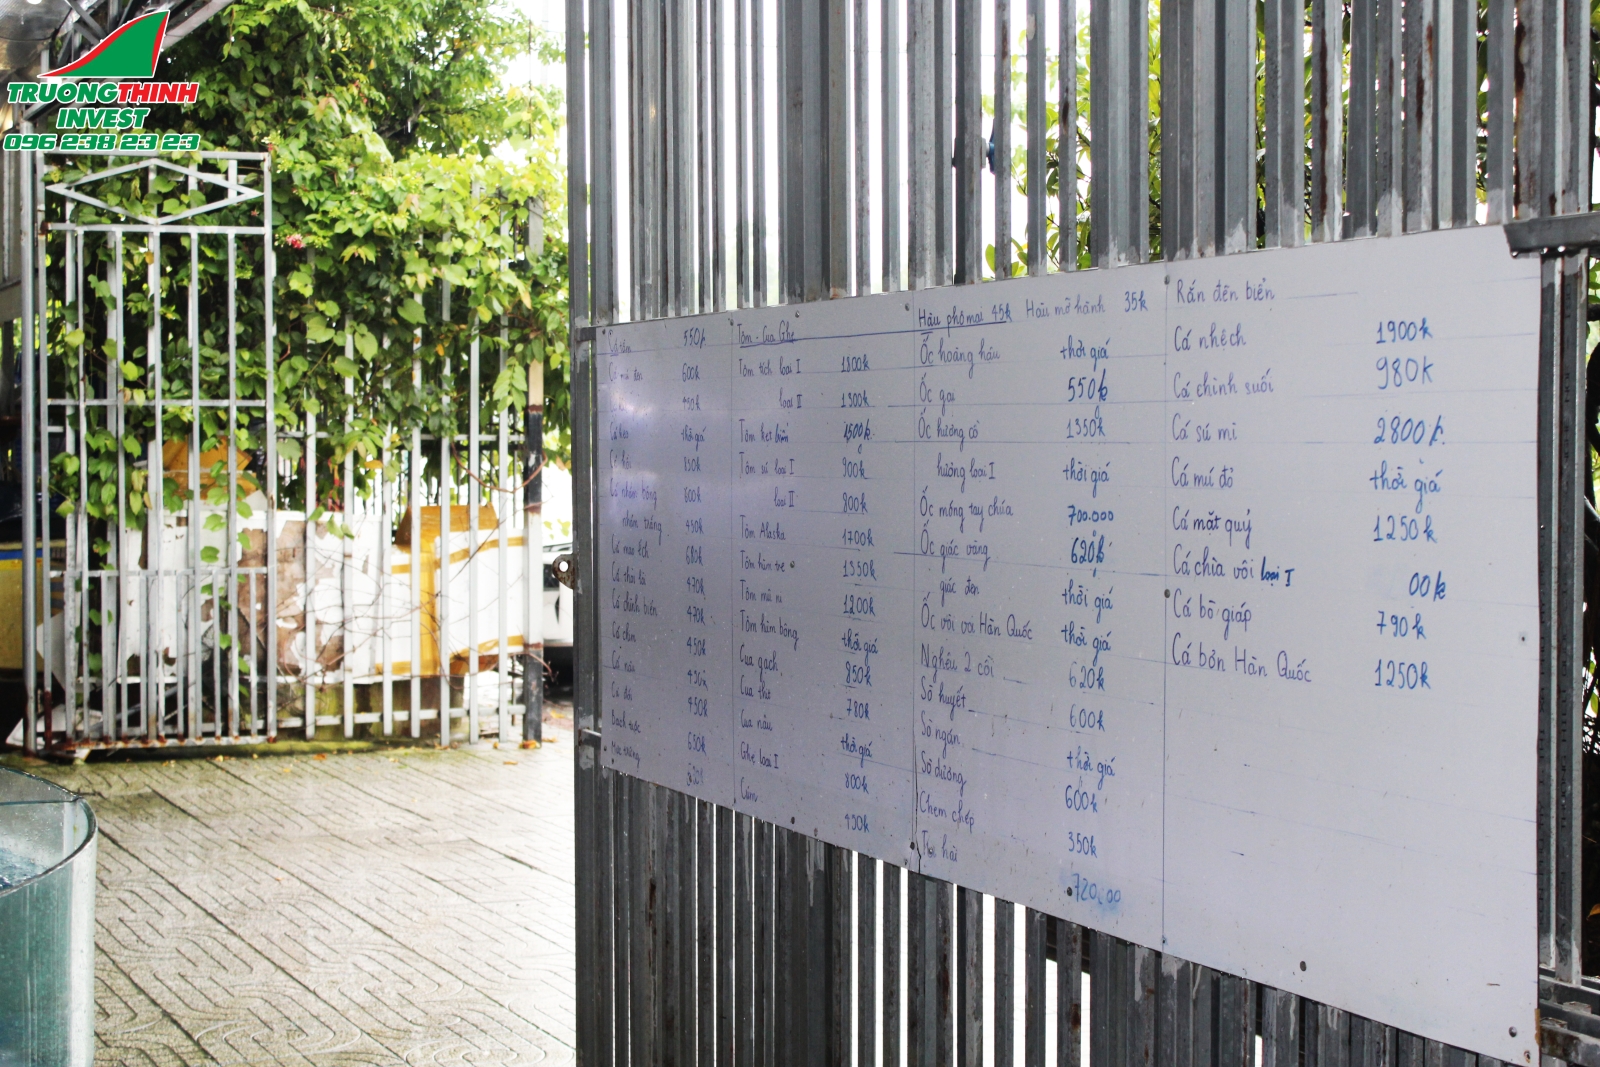 TRUONGTHINH
INVEST
096 238 23 23
Cá tầm 550k
Cá mú đen 600k
450k
Cá kèo thời giá
850k
Cá nhám bông 800k
nhám trắng 450k
680k
Cá thát lát 470k
Cá chình biển 470k
Cá chim 450k
Cá nâu 450k
450k
Bạch tuộc 650k
Mực trứng
Tôm - Cua Ghẹ
Tôm tích loại I 1800k
loại II 1300k
Tôm hẹt biển 1500k
Tôm sú loại I 900k
loại II 800k
Tôm Alaska 1700k
Tôm hùm tre 1350k
Tôm mũ ni 1200k
Tôm hùm bông thời giá
Cua gạch 850k
Cua thịt 780k
Cua nâu thời giá
Ghẹ loại I 800k
Cúm 490k
Hàu phô mai 45k Hàu mỡ hành 35k
Ốc hoàng hậu thời giá
Ốc gai 550k
Ốc hương cồ 1350k
hương loại I thời giá
Ốc móng tay chúa 700.000
Ốc giác vàng 620k
giác đen thời giá
Ốc vòi voi Hàn Quốc thời giá
Nghêu 2 cồi 620k
Sò huyết 600k
Sò ngán thời giá
Sò dương 600k
Chem chép 350k
hài
Rắn đên biển
Cá nhệch 1900k
Cá chình suối 980k
Cá sú mì 2800k
Cá mú đỏ thời giá
Cá mặt quỷ 1250k
Cá chìa vôi loại I 00k
Cá bò giáp 790k
Cá bơn Hàn Quốc 1250k